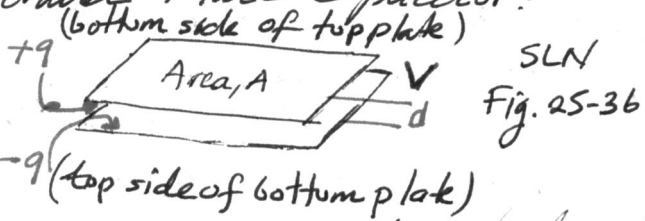 (bottom side of top plate)
+q
SLN
Area, A
V
Fig. 25-3b
d
-q (top side of bottom plate)